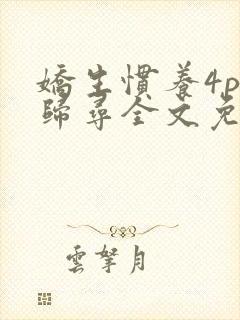 嬌生慣養4p
歸尋全文免
雲拏月